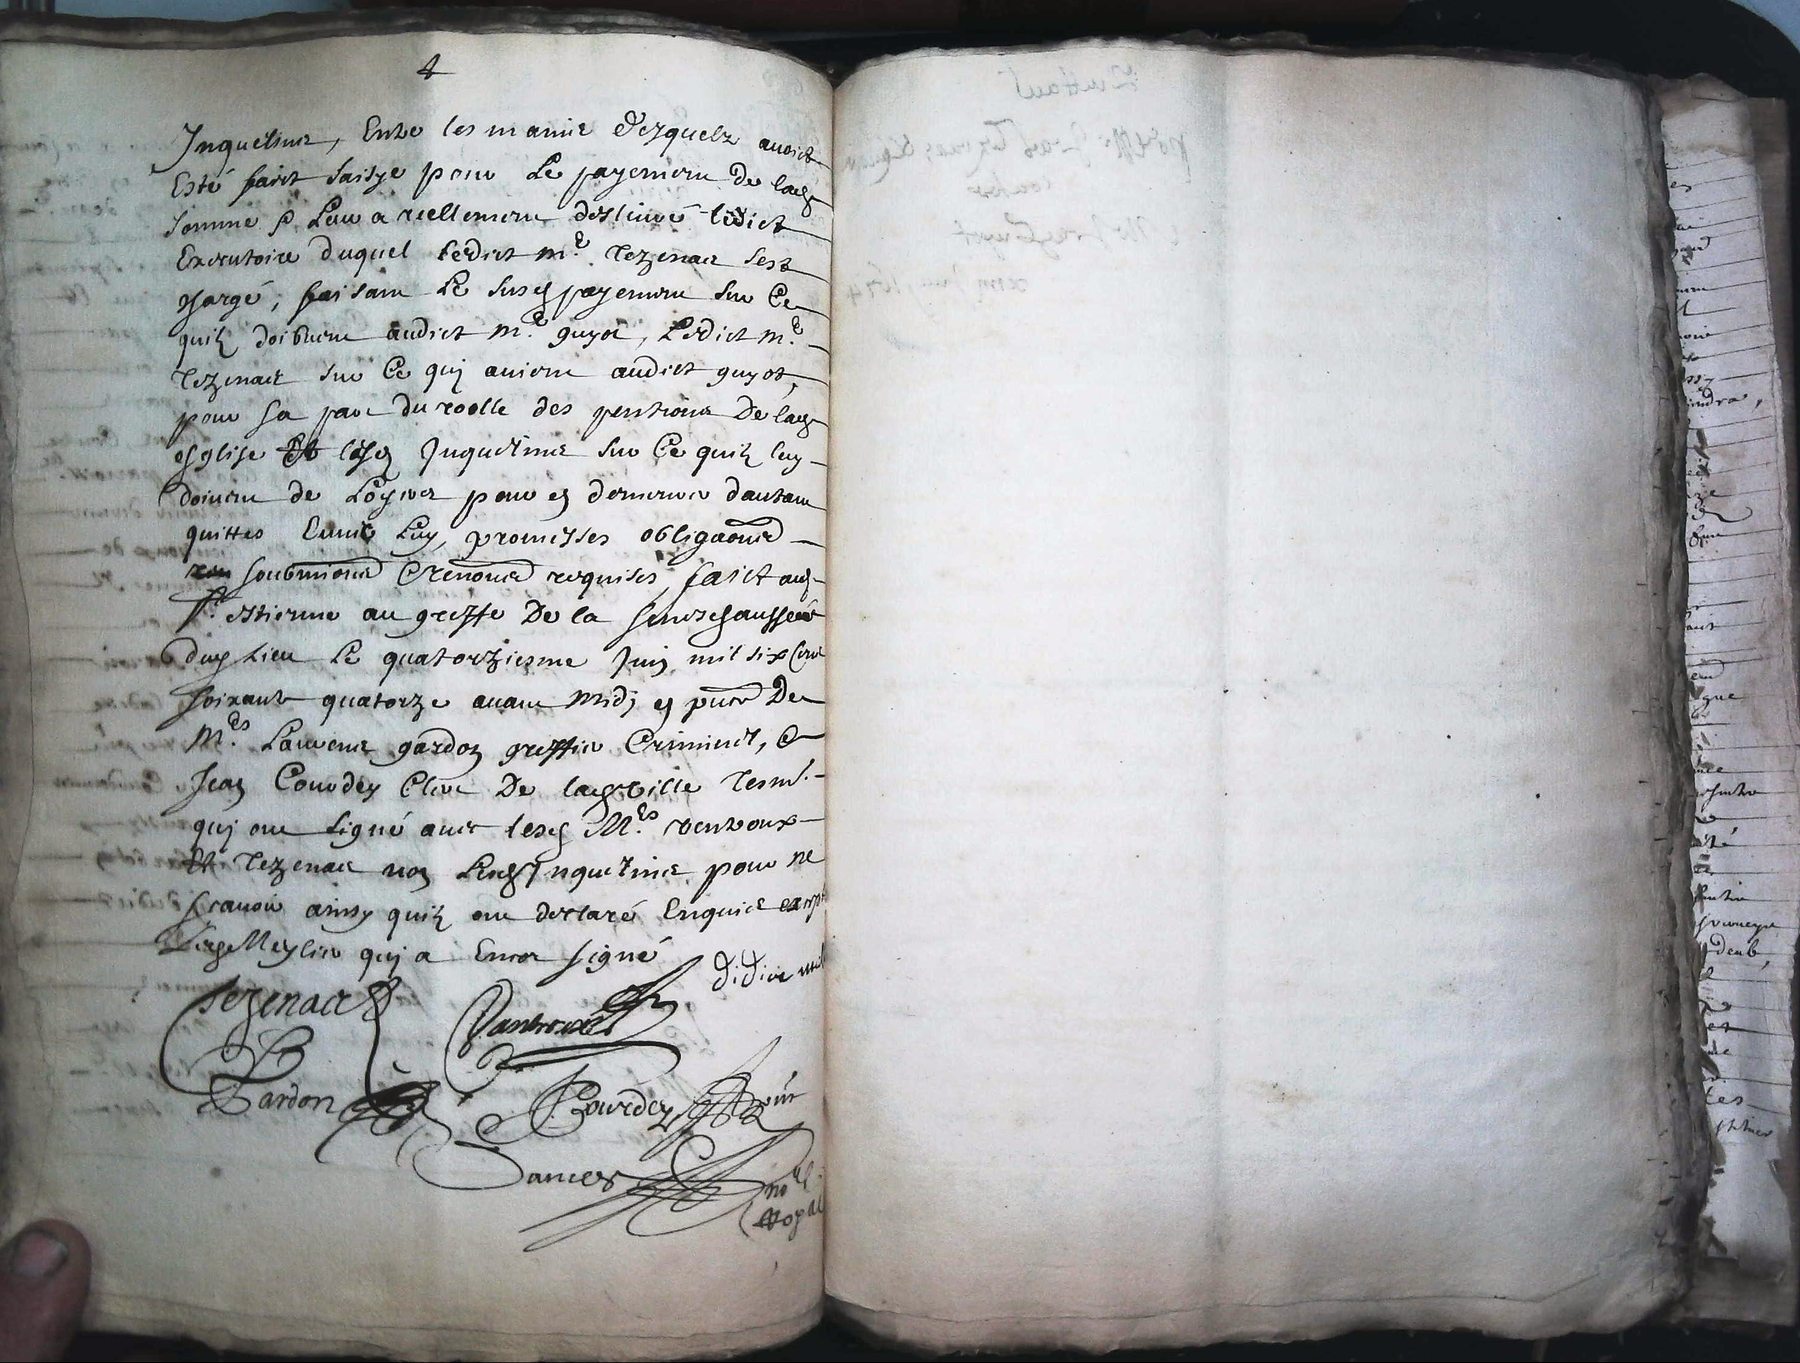 4
Inquelins, Entre les mains desquelz avoict
Esté faict saisye pour le payement de lad
somme & leur a reellement deslivré ledict
Executoire duquel ledict m.e Tezenas sest
chargé, faisant le susd payement sur ce
quilz doibvent audict m.e guyot, Ledict m.e
Tezenas sur ce quj avient audict guyot,
pour sa part du roolle des pentions De lad
esglise Et lesd Inquelins sur ce quilz luy
doivent de Loyers pour en demeurer dautant
quittes Envers Luy, promesses obligaons
soubmions & Renons requises, faict aud
St. estienne au greffe De la seneschaussée
dud Lieu le quatorziesme Juin mil six cent
soixante quatorze avant midj en pnce De
M.es Laurens gardon greffier Criminel, &
Jean Courdey Clerc De lad ville tesm.
quj ont signé avec lesd M.es ventroux
Et Tezenas non Lesd Inquelins pour ne
scavoir ainsy quilz ont declaré Enquis excepté
Led Meylier quj a Encor signé
didier
Tezenas
Vantroux
Gardon
Courdey
Dances
no.re
Royal